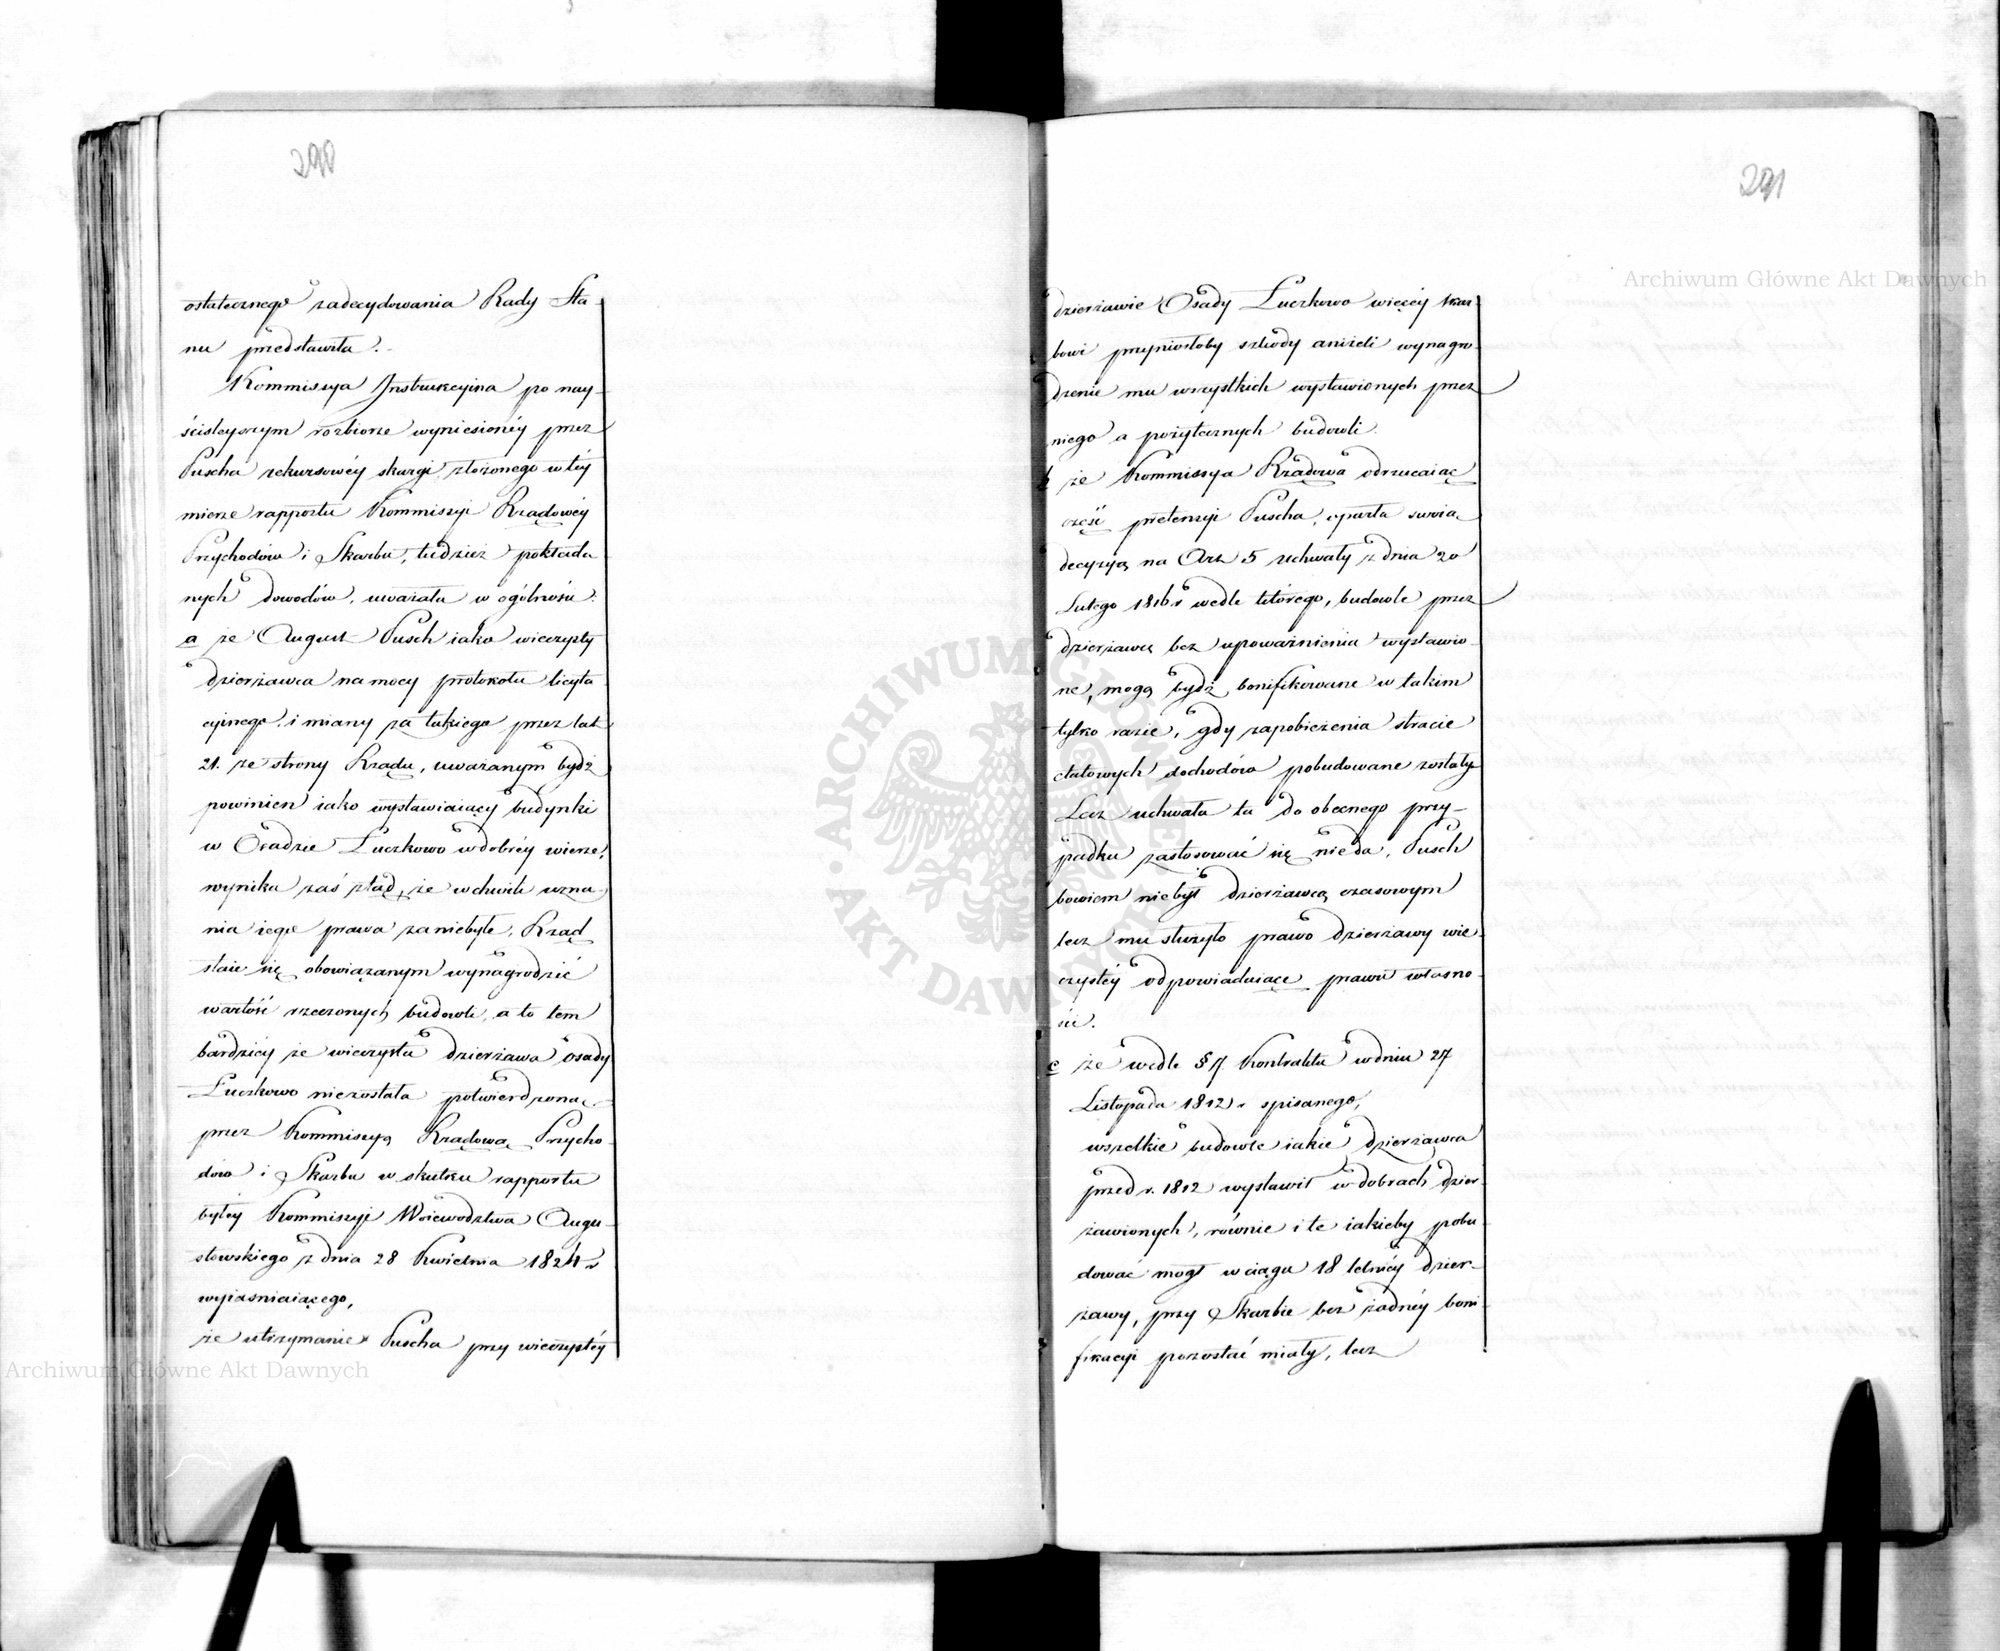 290
ostatecznego zadecydowania Rady Sta-
nu przedstawiła.
Kommissya Instrukcyina po nay-
ścisleyszym rozbiorze wyniesionéy przez
Puscha rekursowéy skargi, złożonego w téy
mierze rapportu Kommissyi Rządowéy
Przychodów i Skarbu, tudzież pokłada-
nych dowodów, uważała w ogólności:
a że August Pusch iako wieczysty
dzierżawca na mocy protokołu licyta-
cyinego, i miany za takiego przez lat
21. ze strony Rządu, uważanym bydź
powinien iako wystawiaiący budynki
w Osadzie Łuczkowo w dobréy wierze,
wynika zaś ztąd, że w chwili uzna-
nia iego prawa za niebyłe, Rząd
staie się obowiązanym wynagrodzić
wartość rzeczonych budowli, a to tem
bardziéy że wieczysta dzierżawa osady
Łuczkowo niezostała potwierdzoną
przez Kommissyą Rządową Przycho-
dów i Skarbu w skutku rapportu
byłéy Kommissyi Woiewództwa Augu-
stowskiego z dnia 28 Kwietnia 1824 r
wyiasniaiącego,
że utrzymanie Puscha przy wieczystéy
291
dzierżawie Osady Łuczkowo więcéy skar-
bowi przyniosłoby szkody aniżeli wynagro-
dzenie mu wszystkich wystawionych przez
niego a pożytecznych budowli.
b że Kommissya Rządowa odrzucaiąc
część pretensyi Puscha, oparła swoią
decyzyą na Art 5 uchwały z dnia 20
Lutego 1816 r wedle którego, budowle przez
dzierżawcę bez upoważnienia wystawio-
ne, mogą bydź bonifikowane w takim
tylko razie, gdy zapobieżenia stracie
etatowych dochodów pobudowane zostały
Lecz uchwała ta do obecnego przy-
padku zastosować się nieda, Pusch
bowiem niebył dzierżawcą czasowym
lecz mu służyło prawo dzierżawy wie-
czystéy odpowiadaiące prawu własno-
ści.
c że wedle § 7. Kontraktu w dniu 27
Listopada 1812 r spisanego,
wszelkie budowle iakie dzierżawca
przed r. 1812 wystawił w dobrach dzier-
żawionych, równie i te iakieby pobu-
dować mógł w ciągu 18 letniéy dzier-
żawy, przy Skarbie bez żadnéy boni-
fikacyi pozostać miały, lecz
Archiwum Główne Akt Dawnych
Archiwum Główne Akt Dawnych
ARCHIWUM GŁÓWNE AKT DAWNYCH